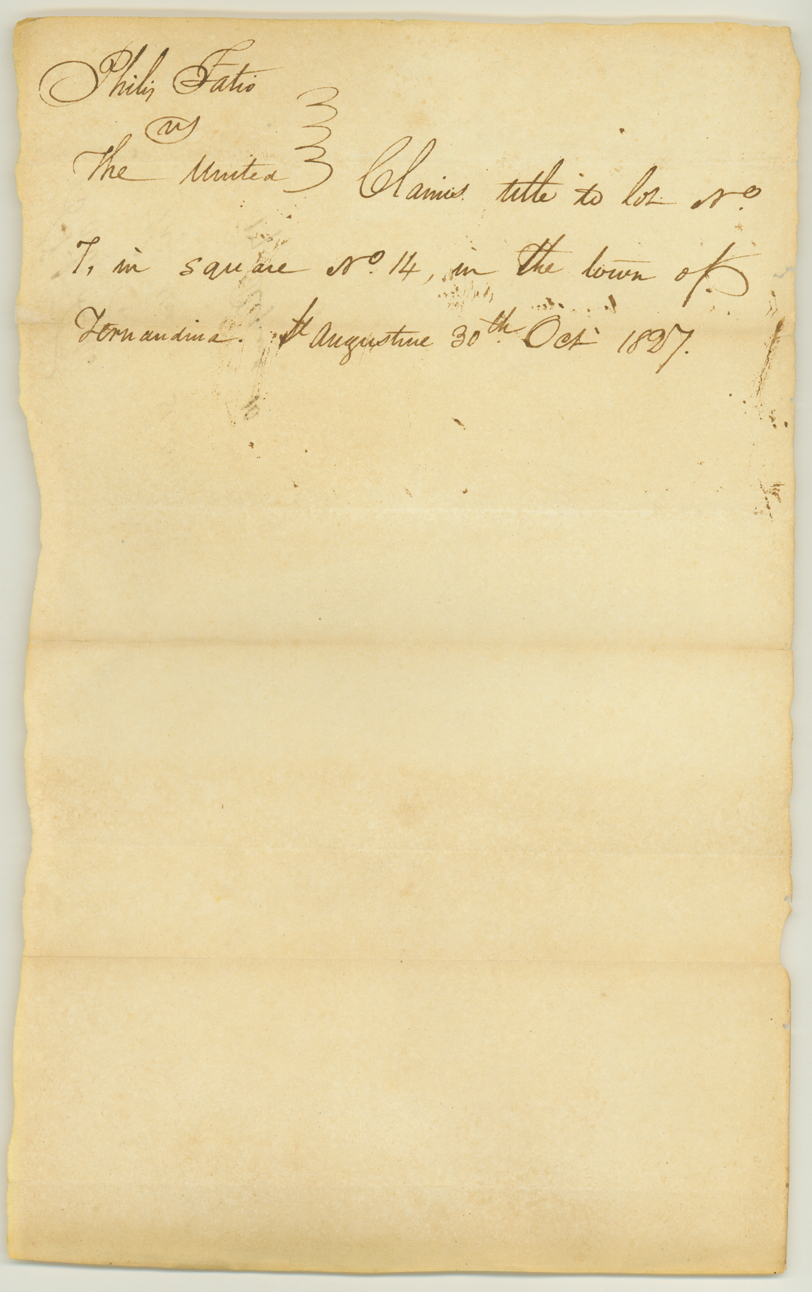 Philis Fatio
vs
The United } Claims title to lot No
7, in square No. 14, in the town of
Fernandina. St Augustine 30th Oct 1827.